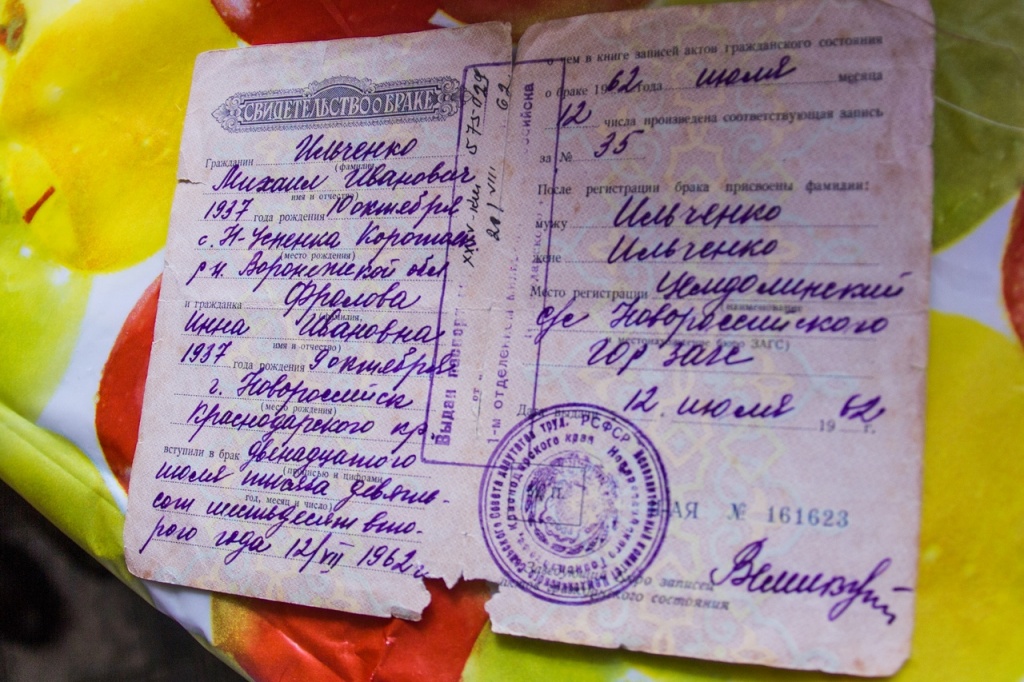 СВИДЕТЕЛЬСТВО О БРАКЕ
Гражданин Ильченко
(фамилия,
Михаил Иванович
имя и отчество)
1937 года рождения 10 октября
с. Н-Успенка
(место рождения)
р-н. Воронежской обл
и гражданка Фролова
(фамилия,
Инна Ивановна
имя и отчество)
1937 года рождения 9 октября
г. Новороссийск
(место рождения)
Краснодарского кр.
вступили в брак двенадцатого
(прописью и цифрами
июля тысяча девять-
год, месяц и число)
сот шестьдесят вто-
рого года 12/VII 1962 г
Выдан паспорт
XXIV-КМ 573029
21/VIII 62
1-м отделением
о чем в книге записей актов гражданского состояния
о браке 1962 года июля месяца
12 числа произведена соответствующая запись
за № 35
После регистрации брака присвоены фамилии:
мужу Ильченко
жене Ильченко
Место регистрации
(наименование
с/с Новороссийского
и местонахождение бюро ЗАГС)
гор ЗАГС
Дата выдачи 12 июля 1962 г.
РСФСР
Краснодарского края
М. П.
АЯ № 161623
Заведующий бюро записей
актов гражданского состояния